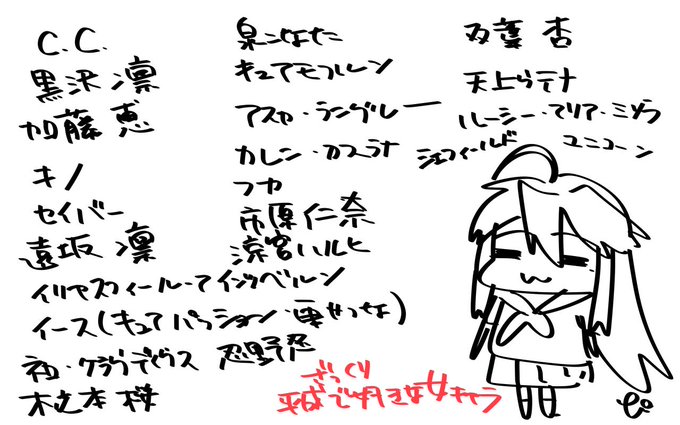 C.C.
黒沢 凛
加藤 恵
キノ
セイバー
遠坂 凛
イリヤスフィール・アインツベルン
イース(キュアパッション・東せつな)
ネロ・クラウディウス 忍野忍
木之本 桜
泉こなた
キュアモフルン
アスカ・ラングレー
カレン・カスラナ
フカ
市原仁奈
涼宮ハルヒ
双葉 杏
天上ウテナ
ルーシー・マリア・ミソラ
シェフィールド ユニコーン
ざっくり
平成で好きな女キャラ